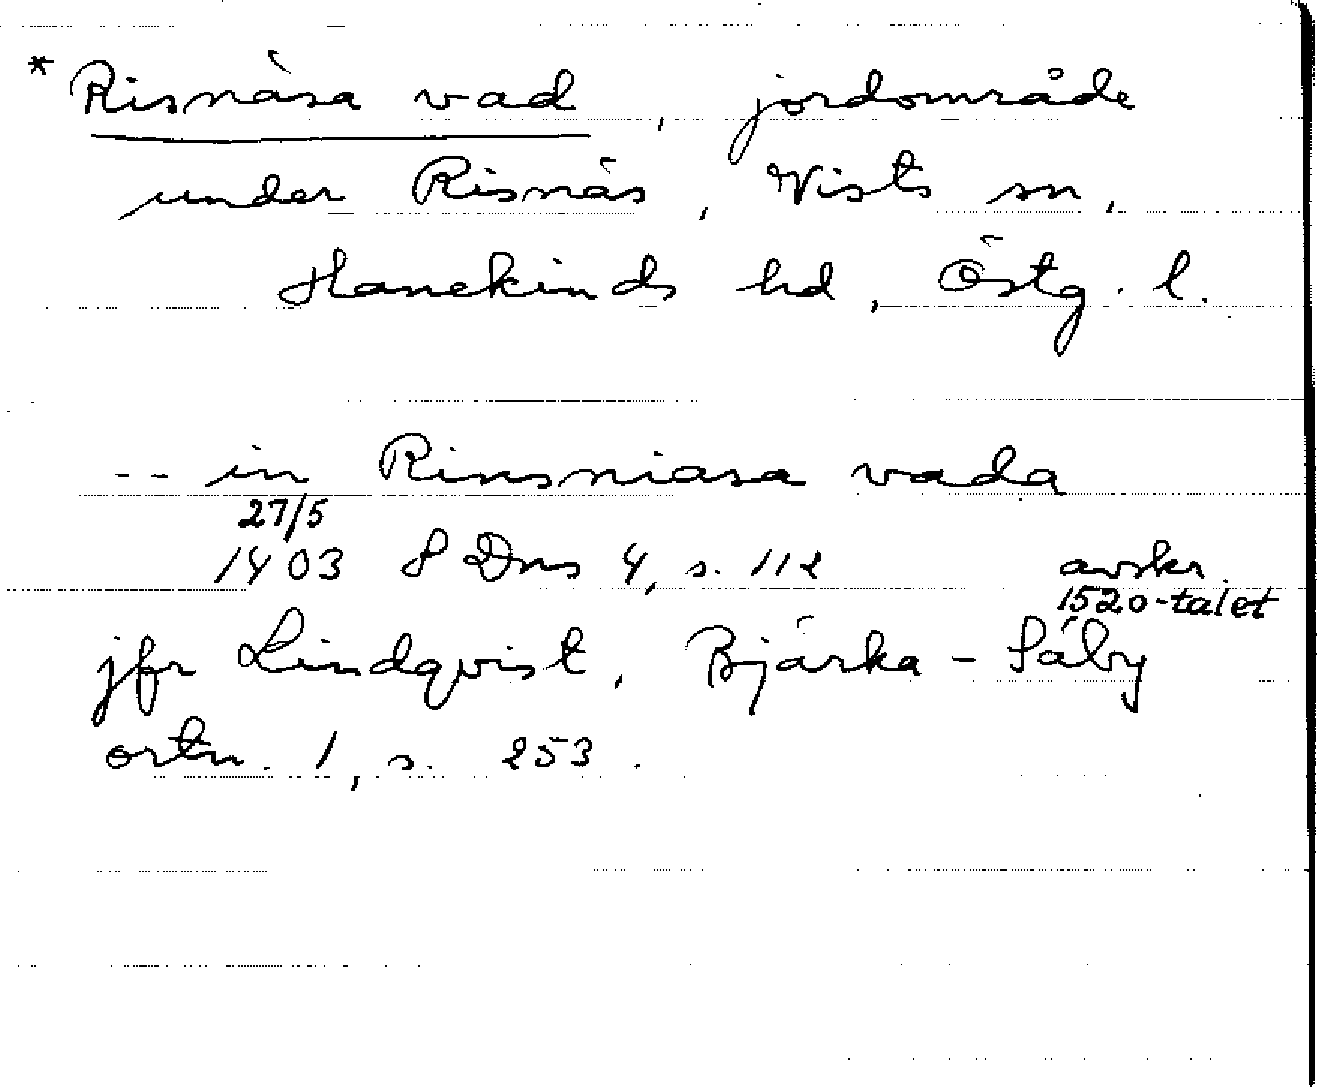 * Risnäsa vad, jordområde
under Risnäs, Vists sn,
Hanekinds hd, Östg. l.
-- in Rinsniasa vada
27/5
1403 SDns 4, s. 112 avskr.
1520-talet
jfr Lindqvist, Bjärka-Säby
ortn. 1, s. 253.